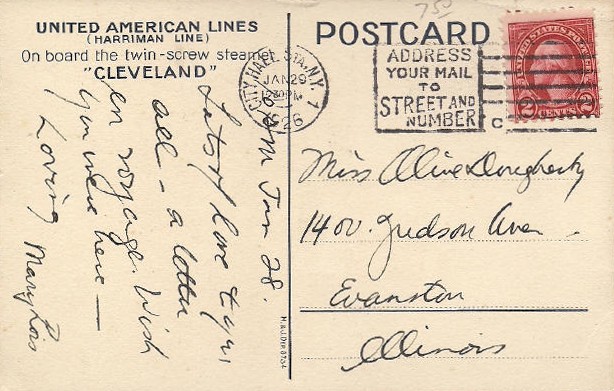 UNITED AMERICAN LINES
(HARRIMAN LINE)
On board the twin-screw steamer
"CLEVELAND"
Jan 28.
Lots of love to you
all - a letter
en voyage. Wish
you were here —
Loving
Mary Lois
H.& J. DER 8754
750
POSTCARD
CITY HALL STA. N.Y. 1
JAN 29
1230 PM
1926
ADDRESS
YOUR MAIL
TO
STREET AND
NUMBER
C
UNITED STATES POSTAGE
2 CENTS 2
Miss Olive Dougherty
Ave.
Evanston
Illinois